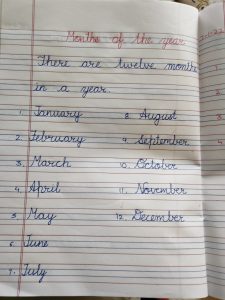 Months of the year
There are twelve months
in a year.
1. January 8. August
2. February 9. September
3. March 10. October
4. April 11. November
5. May 12. December
6. June
7. July